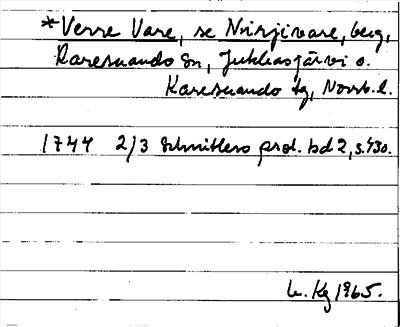 *Verre Vare, se Nirjivare, berg,
Karesuando sn, Jukkasjärvi o.
Karesuando tg, Norrb. l.
1744 2/3 Schnitlers prot. bd 2, s. 430.
h. Kg 1965.